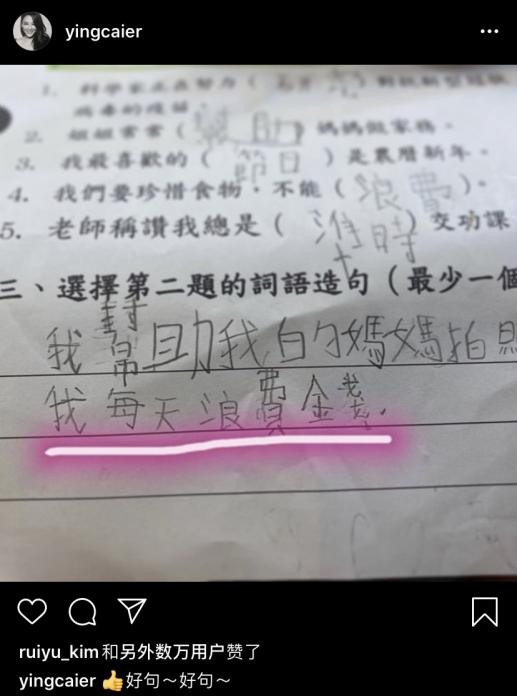 yingcaier
1. 科學家正在努力(
2. 姐姐常常(幫助)媽媽做家務。
3. 我最喜歡的(節日)是農曆新年。
4. 我們要珍惜食物，不能(浪費)。
5. 老師稱讚我總是(準時)交功課
三、選擇第二題的詞語造句(最少一個
我幫助我的媽媽拍照
我每天浪費金錢。
ruiyu_kim和另外数万用户赞了
yingcaier 👍好句～好句～